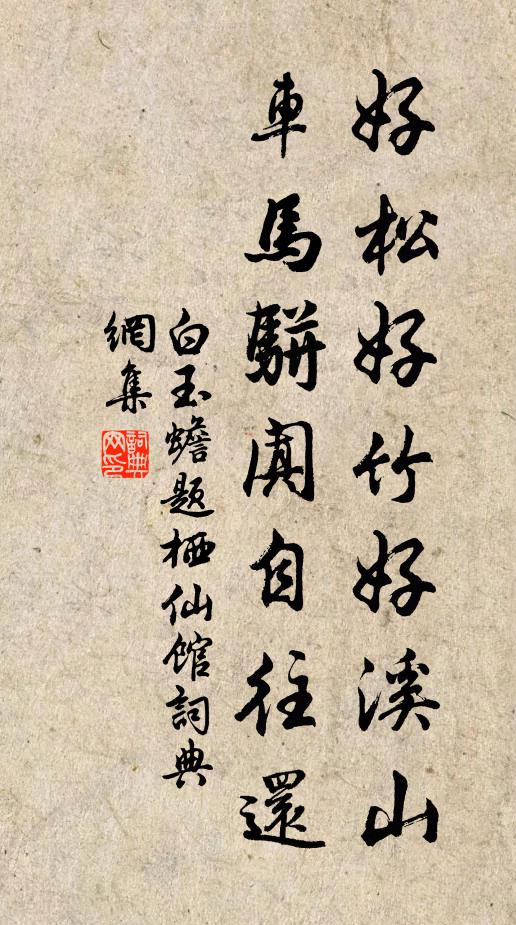 好松好竹好溪山
車馬駢闐自往還
白玉蟾题栖仙馆詞典
網集
詞典
网印